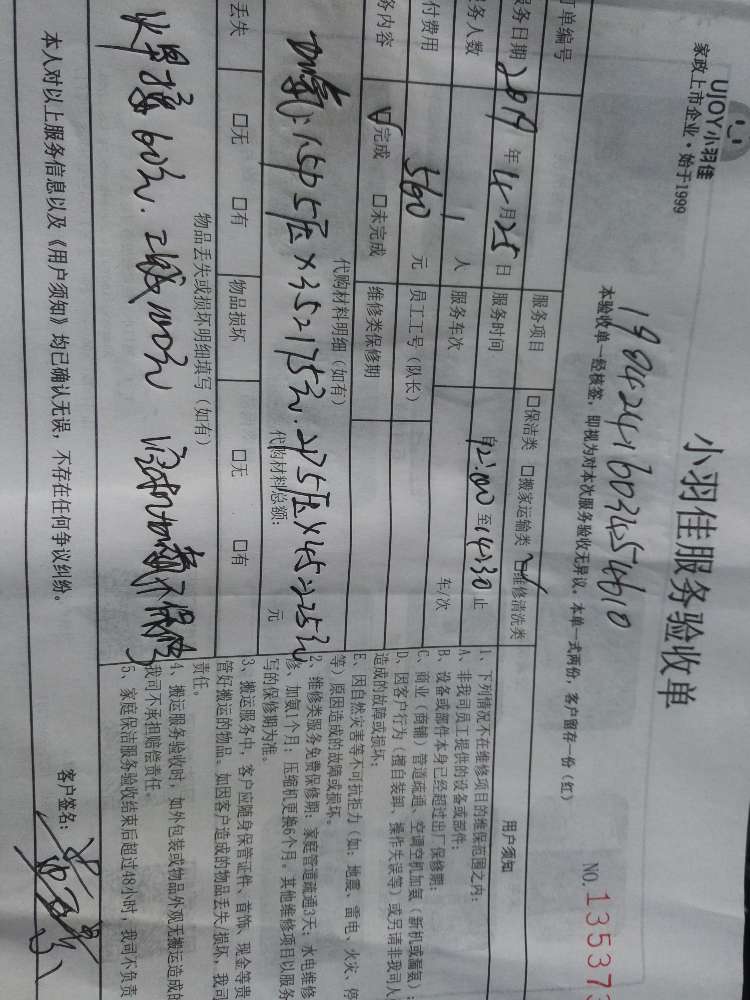 UJOY小羽佳
家政上市企业·始于1999
小羽佳服务验收单
NO.135373
1904241603454610
本验收单一经核签，即视为对本次服务验收无异议。本单一式两份，客户留存一份（红）
单编号 服务项目 □保洁类 □搬家运输类 ☑维修清洗类
服务日期 2019年4月25日 服务时间 自12:00至14:30止
务人数 1人 服务车次 车/次
付费用 560元 员工工号（队长）
务内容 ☑完成 □未完成 维修类保修期
代购材料明细（如有）
加氟:1.5P 5压×35=175元. 2P5压×45=225元
代购材料总额： 元
丢失 □无 □有 物品损坏 □无 □有
物品丢失或损坏明细填写（如有）
60元. 100元 加氟不保
本人对以上服务信息以及《用户须知》均已确认无误，不存在任何争议纠纷。
客户签名：
用户须知
1、下列情况不在维修项目的维保范围之内：
A、非我司员工提供的设备或部件；
B、设备或部件本身已经超过出厂保修期；
C、商业（商铺）管道疏通、空调空机加氨（新机或漏氨）；
D、因客户行为（擅自装卸、操作失误等）或另请非我司人
造成的故障或损坏；
E、因自然灾害等不可抗拒力（如：地震、雷电、火灾、停
等）原因造成的故障或损坏。
2、维修类服务免费保修期：家庭管道疏通3天；水电维修
修、加氨1个月；压缩机更换6个月。其他维修项目以服务
写的保修期为准。
3、搬运服务中，客户应随身保管证件、首饰、现金等贵
管好搬运的物品。如因客户造成的物品丢失/损坏，我司
责任。
4、搬运服务验收时，如外包装或物品外观无搬运造成的
我司不承担赔偿责任。
5、家庭保洁服务验收结束后超过48小时，我司不负责